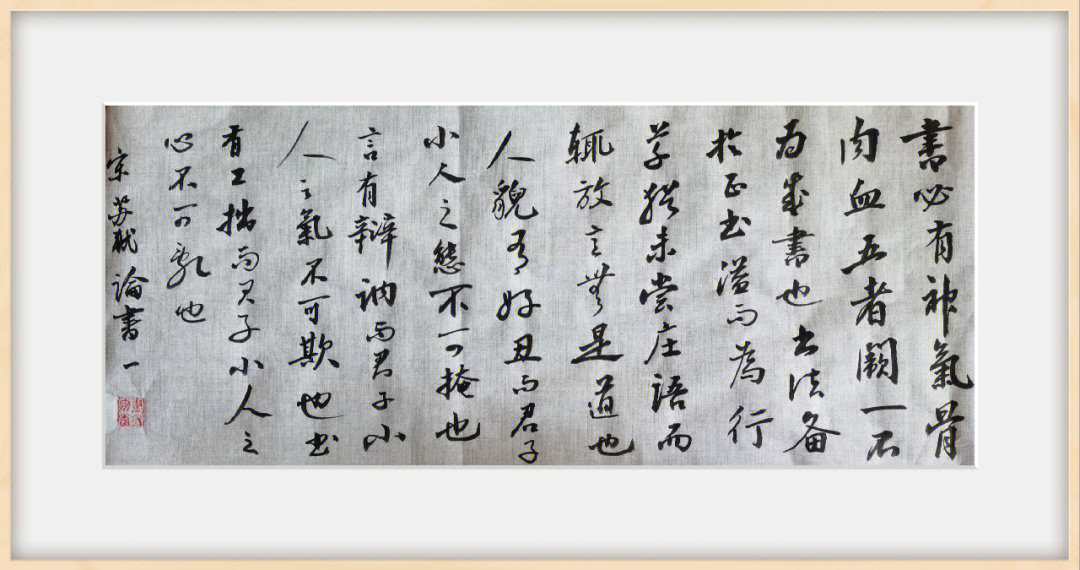 書必有神氣骨
肉血五者闕一不
为成書也书法备
於正书溢而為行
草猶未尝庄語而
辄放言無是道也
人貌有好丑而君子
小人之態不可掩也
言有辩訥而君子小
人之氣不可欺也书
有工拙而君子小人之
心不可亂也
宋苏軾論書一